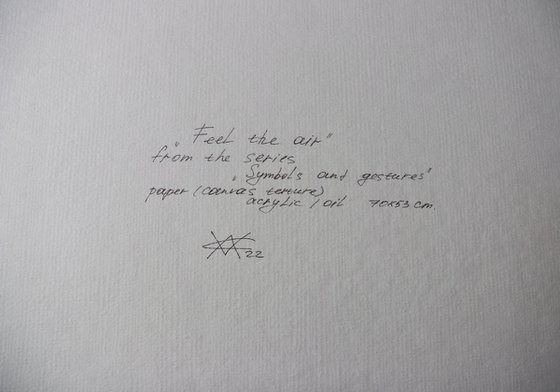 „Feel the air"
from the series
„Symbols and gestures"
paper (canvas texture)
acrylic / oil 70x53 cm.
22